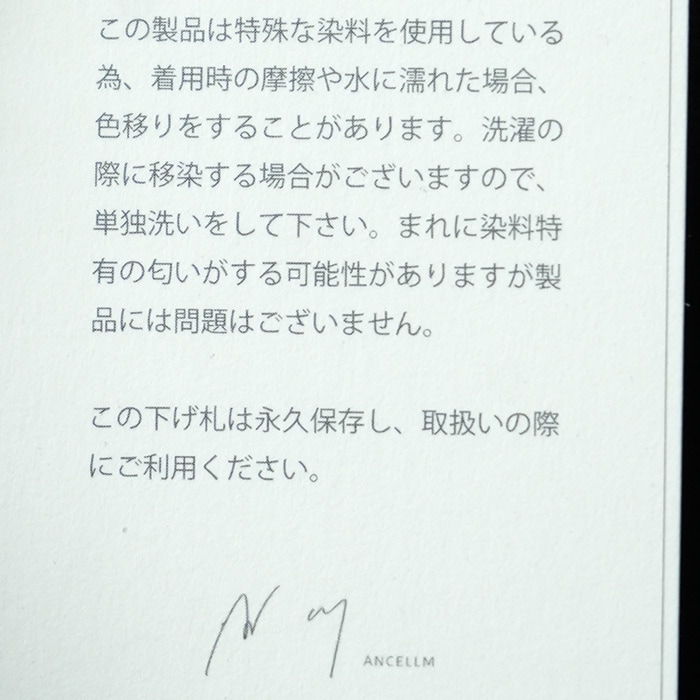 この製品は特殊な染料を使用している
為、着用時の摩擦や水に濡れた場合、
色移りをすることがあります。洗濯の
際に移染する場合がございますので、
単独洗いをして下さい。まれに染料特
有の匂いがする可能性がありますが製
品には問題はございません。
この下げ札は永久保存し、取扱いの際
にご利用ください。
ANCELLM